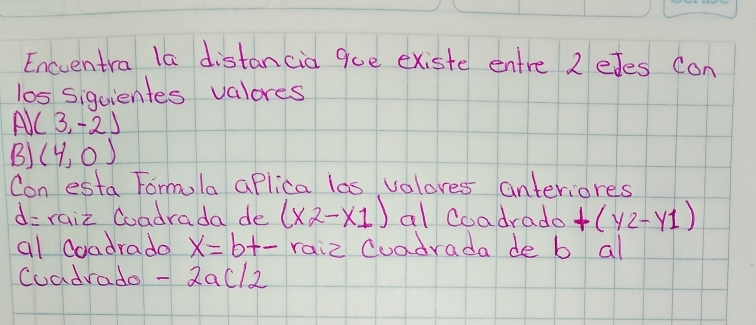 Encuentra la distancia que existe entre 2 eJes con
los siguientes valores
A)(3,-2)
B)(4,0)
Con esta Fórmula aplica los valores anteriores
d=raiz Cuadrada de (x2-x1) al cuadrado +(y2-y1)
al cuadrado X=b+- raiz cuadrada de b al
Cuadrado - 2ac/2